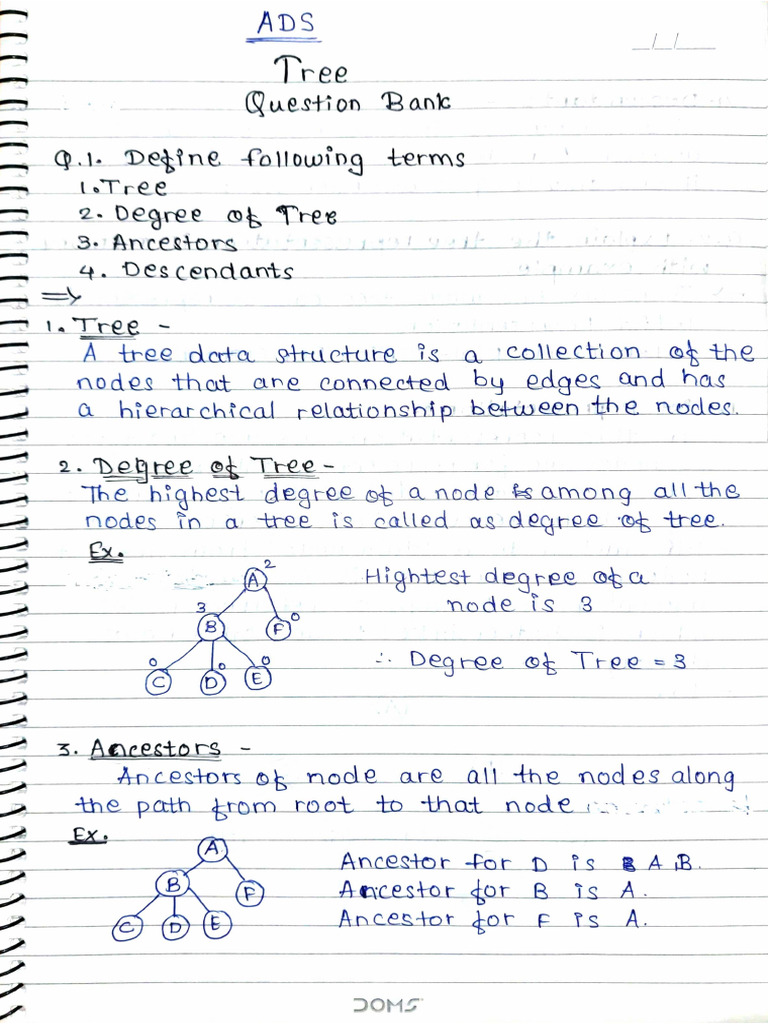 ADS
_/_/___
Tree
Question Bank
Q.1. Define following terms
1. Tree
2. Degree of Tree
3. Ancestors
4. Descendants
⇒
1. Tree -
A tree data structure is a collection of the
nodes that are connected by edges and has
a hierarchical relationship between the nodes.
2. Degree of Tree -
The highest degree of a node is among all the
nodes in a tree is called as degree of tree.
Ex.
A 2
3 B
F 0
0 C
D 0
E 0
Hightest degree of a
node is 3
∴ Degree of Tree = 3
3. Ancestors -
Ancestors of node are all the nodes along
the path from root to that node
Ex.
A
B
F
C D E
Ancestor for D is A, B.
Ancestor for B is A.
Ancestor for F is A.
DOMS